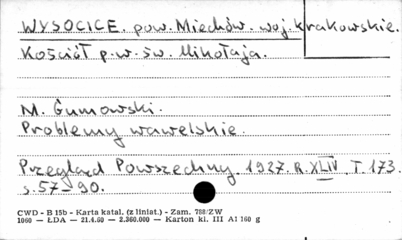 WYSOCICE. pow. Miechów. woj. krakowskie.
Kościół p.w. św. Mikołaja.
M. Gumowski.
Problemy wawelskie.
Przegląd Powszechny. 1927. R. XLIV. T. 173.
s. 57-90.
CWD - B 15b - Karta katal. (z liniat.) - Zam. 788/ZW
1060 — ŁDA — 21.4.60 — 2.360.000 — Karton kl. III A1 160 g